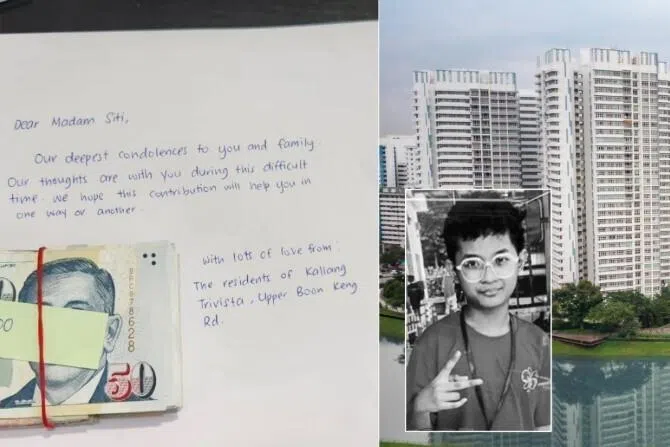 Dear Madam Siti,
Our deepest condolences to you and family.
Our thoughts are with you during this difficult
time. We hope this contribution will help you in
one way or another.
with lots of love from:
The residents of Kallang
Trivista, Upper Boon Keng
Rd.
50